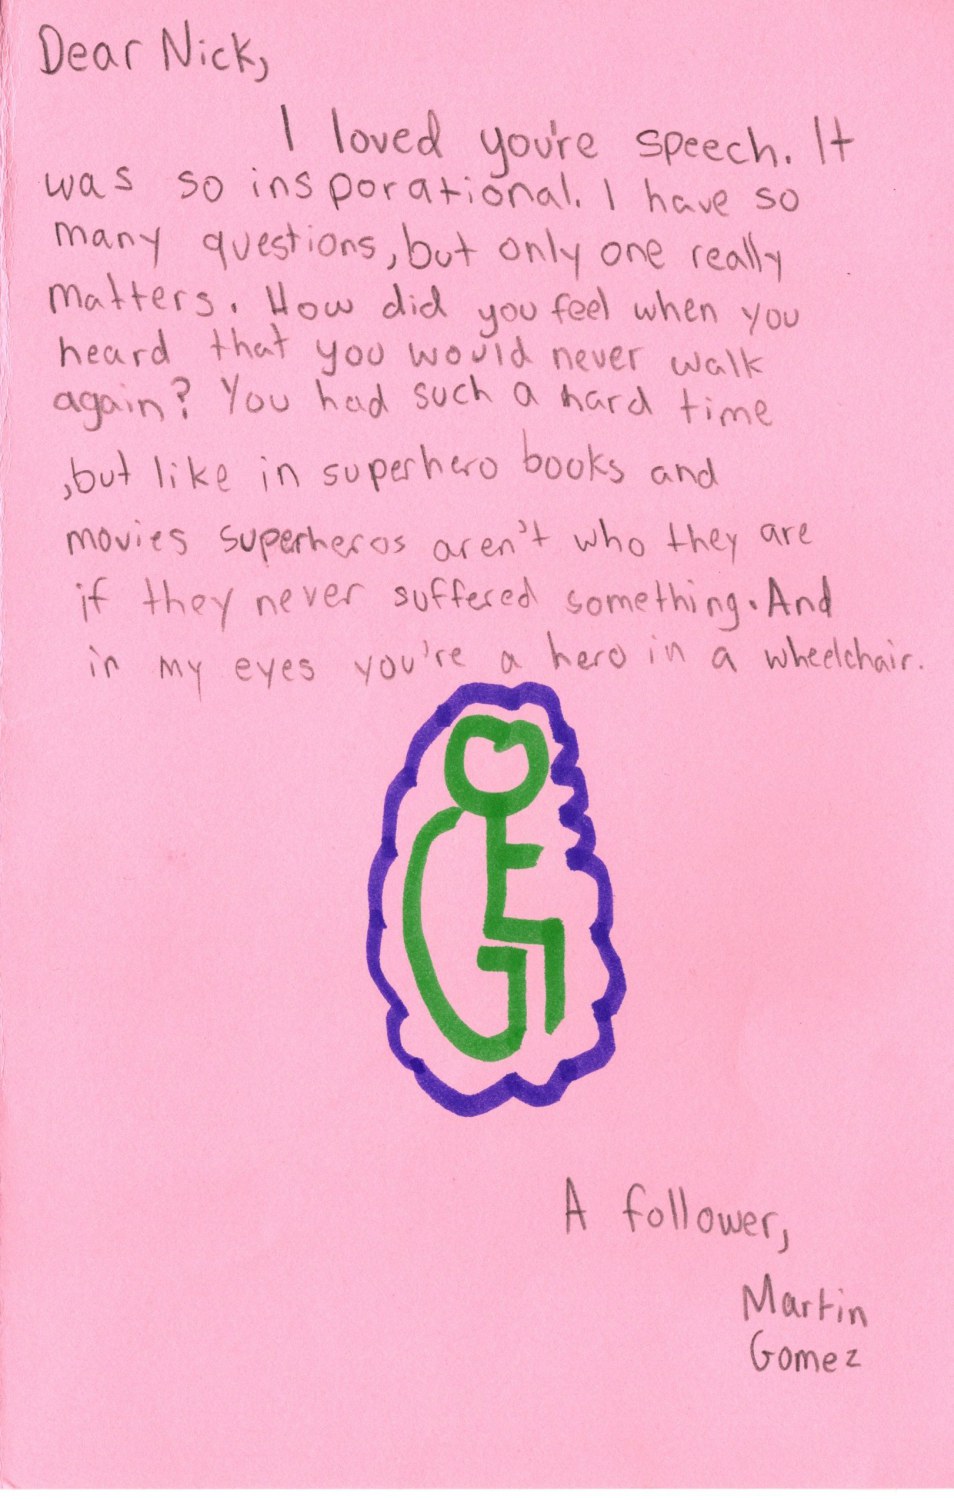 Dear Nick,
I loved you're speech. It
was so insporational. I have so
many questions, but only one really
matters. How did you feel when you
heard that you would never walk
again? You had such a hard time
,but like in superhero books and
movies superheros aren't who they are
if they never suffered something. And
in my eyes you're a hero in a wheelchair.
A follower,
Martin
Gomez